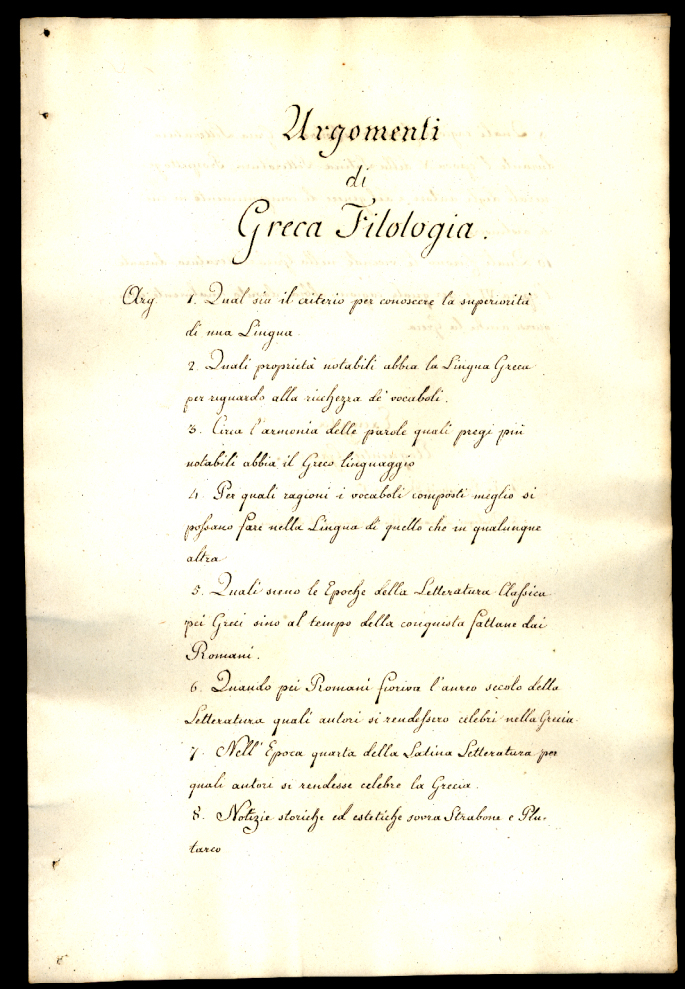 Argomenti
di
Greca Filologia.
Arg. 1. Qual sia il criterio per conoscere la superiorità
di una Lingua
2. Quali proprietà notabili abbia la Lingua Greca
per riguardo alla ricchezza de' vocaboli.
3. Circa l'armonia delle parole quali pregi più
notabili abbia il Greco linguaggio
4. Per quali ragioni i vocaboli composti meglio si
possano fare nella Lingua di quello che in qualunque
altra
5. Quali sieno le Epoche della Letteratura Classica
pei Greci sino al tempo della conquista fattane dai
Romani.
6. Quando pei Romani fioriva l'aureo secolo della
Letteratura quali autori si rendessero celebri nella Grecia.
7. Nell' Epoca quarta della Latina Letteratura per
quali autori si rendesse celebre la Grecia.
8. Notizie storiche ed estetiche sovra Strabone e Plu-
tarco